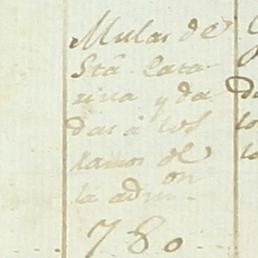 Mulas de
Sta. Cata-
rina y da
das á los
ramos de
la admon.
780